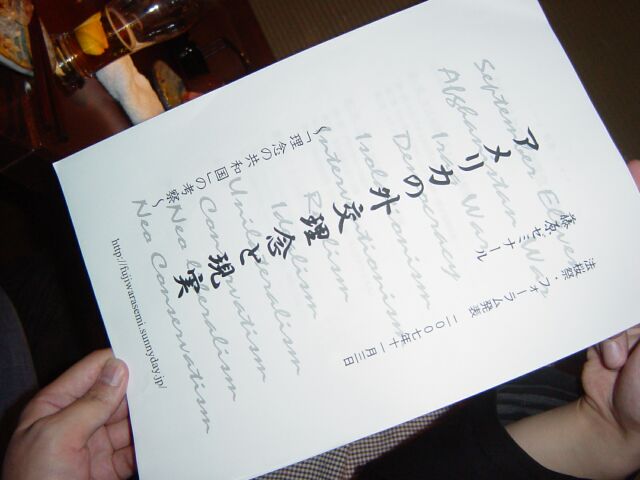 法桜祭・フォーラム発表 二〇〇七年十一月三日
藤原ゼミナール
アメリカの外交理念と現実
～「理念の共和国」の考察～
September Eleven
Afghanistan War
Iraq War
Democracy
Isolationism
Interventionism
Realism
Idealism
Unilateralism
Conservatism
Neo Liberalism
Neo Conservatism
http://fujiwarasemi.sunnyday.jp/